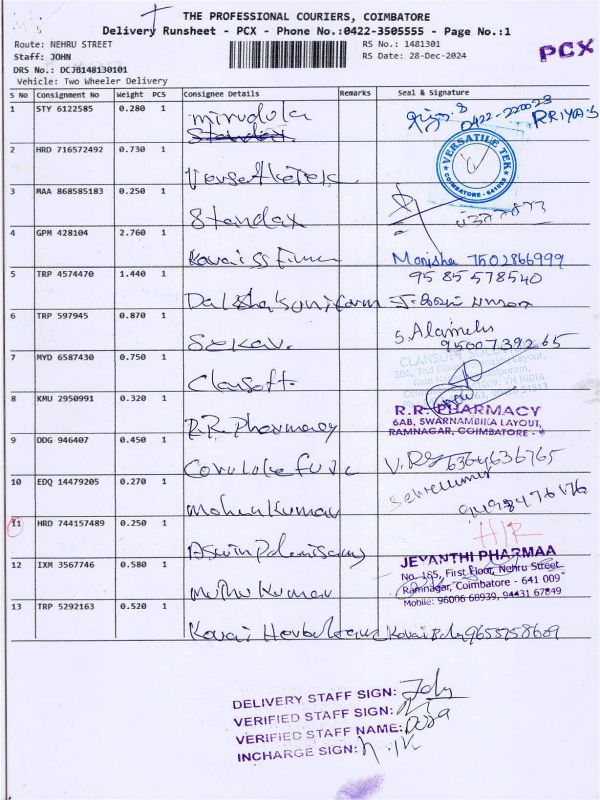 THE PROFESSIONAL COURIERS, COIMBATORE
Delivery Runsheet - PCX - Phone No.:0422-3505555 - Page No.:1
Route: NEHRU STREET
Staff: JOHN
DRS No.: DCJB148130101
Vehicle: Two Wheeler Delivery
RS No.: 1481301
RS Date: 28-Dec-2024
PCX
S No Consignment No Weight PCS Consignee Details Remarks Seal & Signature
1 STY 6122585 0.280 1 mirudola
0422-220023 PRIYA.S
2 HRD 716572492 0.730 1
VERSATILE TEK
COIMBATORE - 641009
3 MAA 868585183 0.250 1 Standax
4 GPM 428104 2.760 1 Kovai SS
Monisha 7502866999
5 TRP 4574470 1.440 1
9585578540
6 TRP 597945 0.870 1 Sekav.
S. Alamelu
9500739265
7 MYD 6587430 0.750 1 Clansoft.
8 KMU 2950991 0.320 1 R.R. Pharmacy
R.R. PHARMACY
6AB, SWARNAMBIKA LAYOUT,
RAMNAGAR, COIMBATORE - 9
9 DDG 946407 0.450 1
6364636765
10 EDQ 14479205 0.270 1 Mohankumar
11 HRD 744157489 0.250 1
H/R
12 IXM 3567746 0.580 1 Muthu Kumar
JEYANTHI PHARMAA
No. 185, First Floor, Nehru Street
Ramnagar, Coimbatore - 641 009
Mobile: 96006 68939, 94431 67849
13 TRP 5292163 0.520 1 Kovai
DELIVERY STAFF SIGN:
VERIFIED STAFF SIGN:
VERIFIED STAFF NAME:
INCHARGE SIGN: